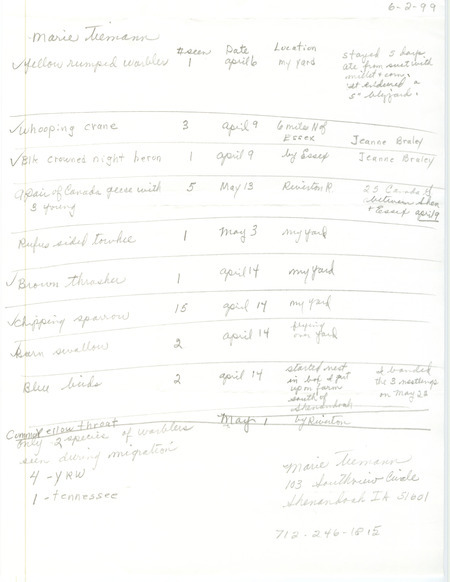 6-2-99
Marie Tiemann
# seen Date Location
✓yellow rumped warbler 1 april 6 my yard stayed 5 days
ate from suet with
millet + corn.
5" blizzard.
✓Whooping crane 3 april 9 6 miles N of Essex Jeanne Braley
✓Blk crowned night heron 1 april 9 by Essex Jeanne Braley
a pair of Canada geese with 5 May 13 Riverton R 23 Canada g
3 young between Shen
+ Essex april 9
Rufus sided towhee 1 May 3 my yard
✓Brown thrasher 1 april 14 my yard
✓Chipping sparrow 15 april 14 my yard
✓barn swallow 2 april 14 flying
over yard
Blue birds 2 april 14 started nest I banded
in box I put the 3 nestlings
up on farm on May 23
south of
Shenandoah
Common yellow throat May 1 by Riverton
only 2 species of warblers
seen during migration
4 - YRW
1 - tennessee
Marie Tiemann
103 Southview Circle
Shenandoah IA 51601
712-246-1815